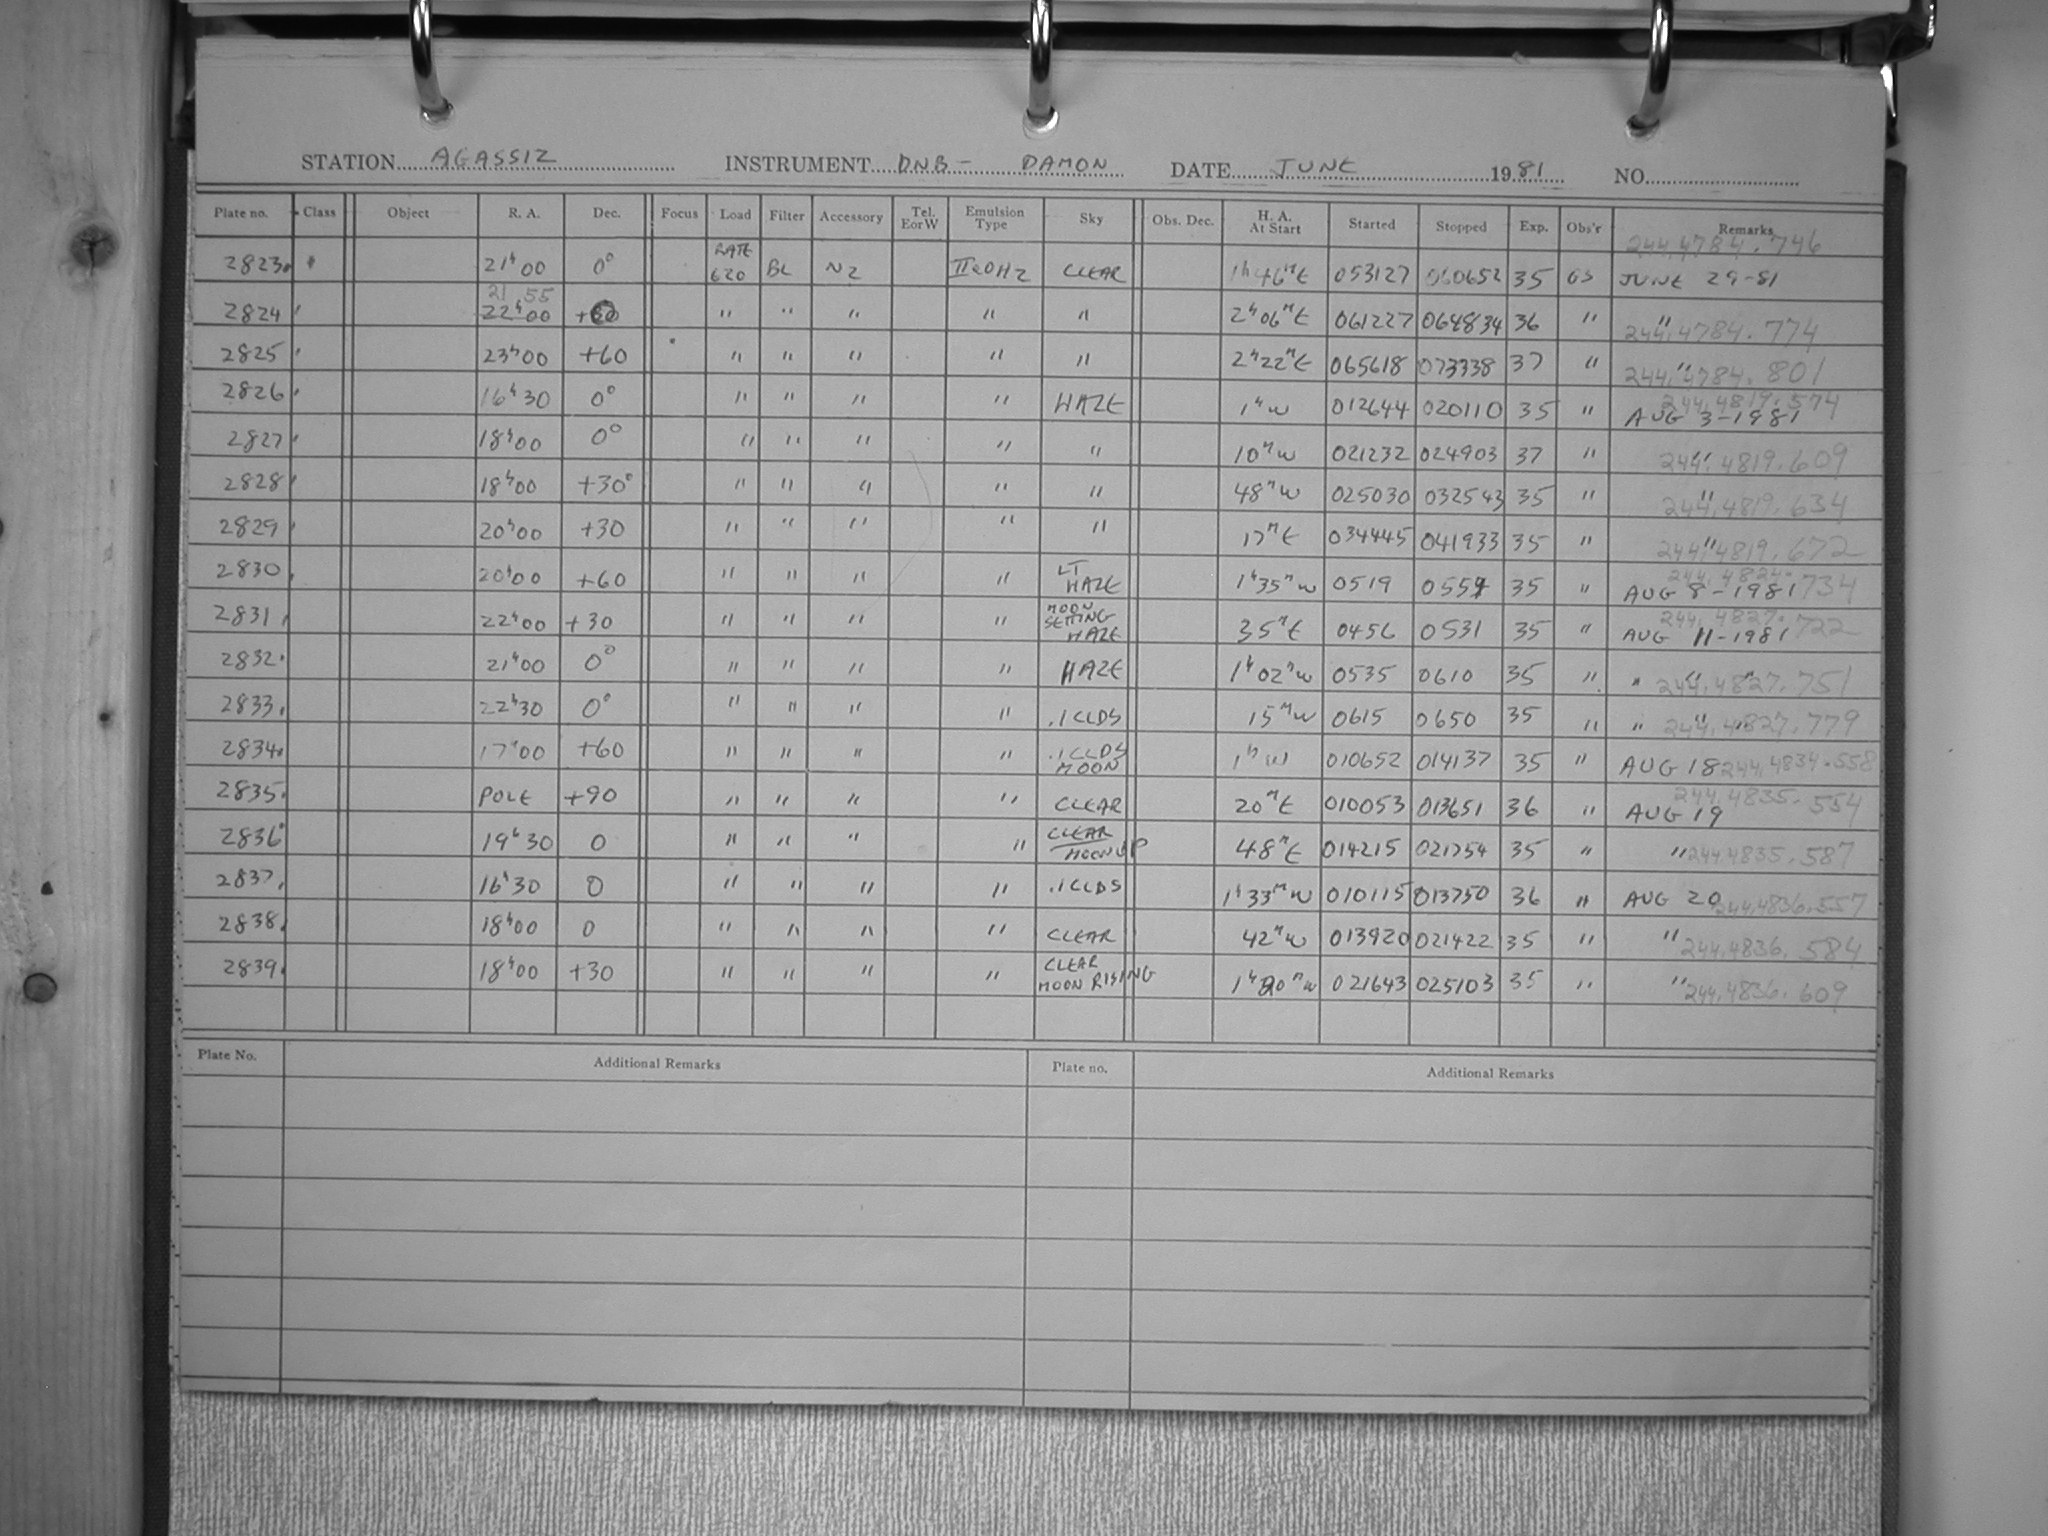 STATION AGASSIZ INSTRUMENT DNB - DAMON DATE JUNE 1981 NO.
Plate no. Class Object R. A. Dec. Focus Load Filter Accessory Tel. EorW Emulsion Type Sky Obs. Dec. H. A. At Start Started Stopped Exp. Obs'r Remarks
2823 21h00 0° RATE 620 BL N2 IIaOH2 CLEAR 1h46mE 053127 060652 35 GS 244,4784.746 JUNE 29-81
2824 21 55 22h00 " " " " " 2h06mE 061227 064834 36 " " 244,4784.774
2825 23h00 +60 " " " " " 2h22mE 065618 073338 37 " " 244,4784.801
2826 16h30 0° " " " " HAZE 1hW 012644 020110 35 " 244,4819.574 AUG 3-1981
2827 18h00 0° " " " " " 10mW 021232 024903 37 " " 244,4819.609
2828 18h00 +30° " " " " " 48mW 025030 032543 35 " " 244,4819.634
2829 20h00 +30 " " " " " 17mE 034445 041933 35 " " 244,4819.672
2830 20h00 +60 " " " " LT HAZE 1h35mW 0519 0554 35 " 244,4824.734 AUG 8-1981
2831 22h00 +30 " " " " MOON SETTING HAZE 35mE 0456 0531 35 " 244,4827.722 AUG 11-1981
2832 21h00 0° " " " " HAZE 1h02mW 0535 0610 35 " " " " 244,4827.751
2833 22h30 0° " " " " .1CLDS 15mW 0615 0650 35 " " " " 244,4827.779
2834 17h00 +60 " " " " .1CLDS MOON 1hW 010652 014137 35 " AUG 18 244,4834.558
2835 POLE +90 " " " " CLEAR 20mE 010053 013651 36 " 244,4835.554 AUG 19
2836 19h30 0 " " " " CLEAR MOON UP 48mE 014215 021754 35 " " 244,4835.587
2837 16h30 0 " " " " .1CLDS 1h33mW 010115 013750 36 " AUG 20 244,4836.557
2838 18h00 0 " " " " CLEAR 42mW 013920 021422 35 " " 244,4836.584
2839 18h00 +30 " " " " CLEAR MOON RISING 1h20mW 021643 025103 35 " " 244,4836.609
Plate No. Additional Remarks Plate no. Additional Remarks